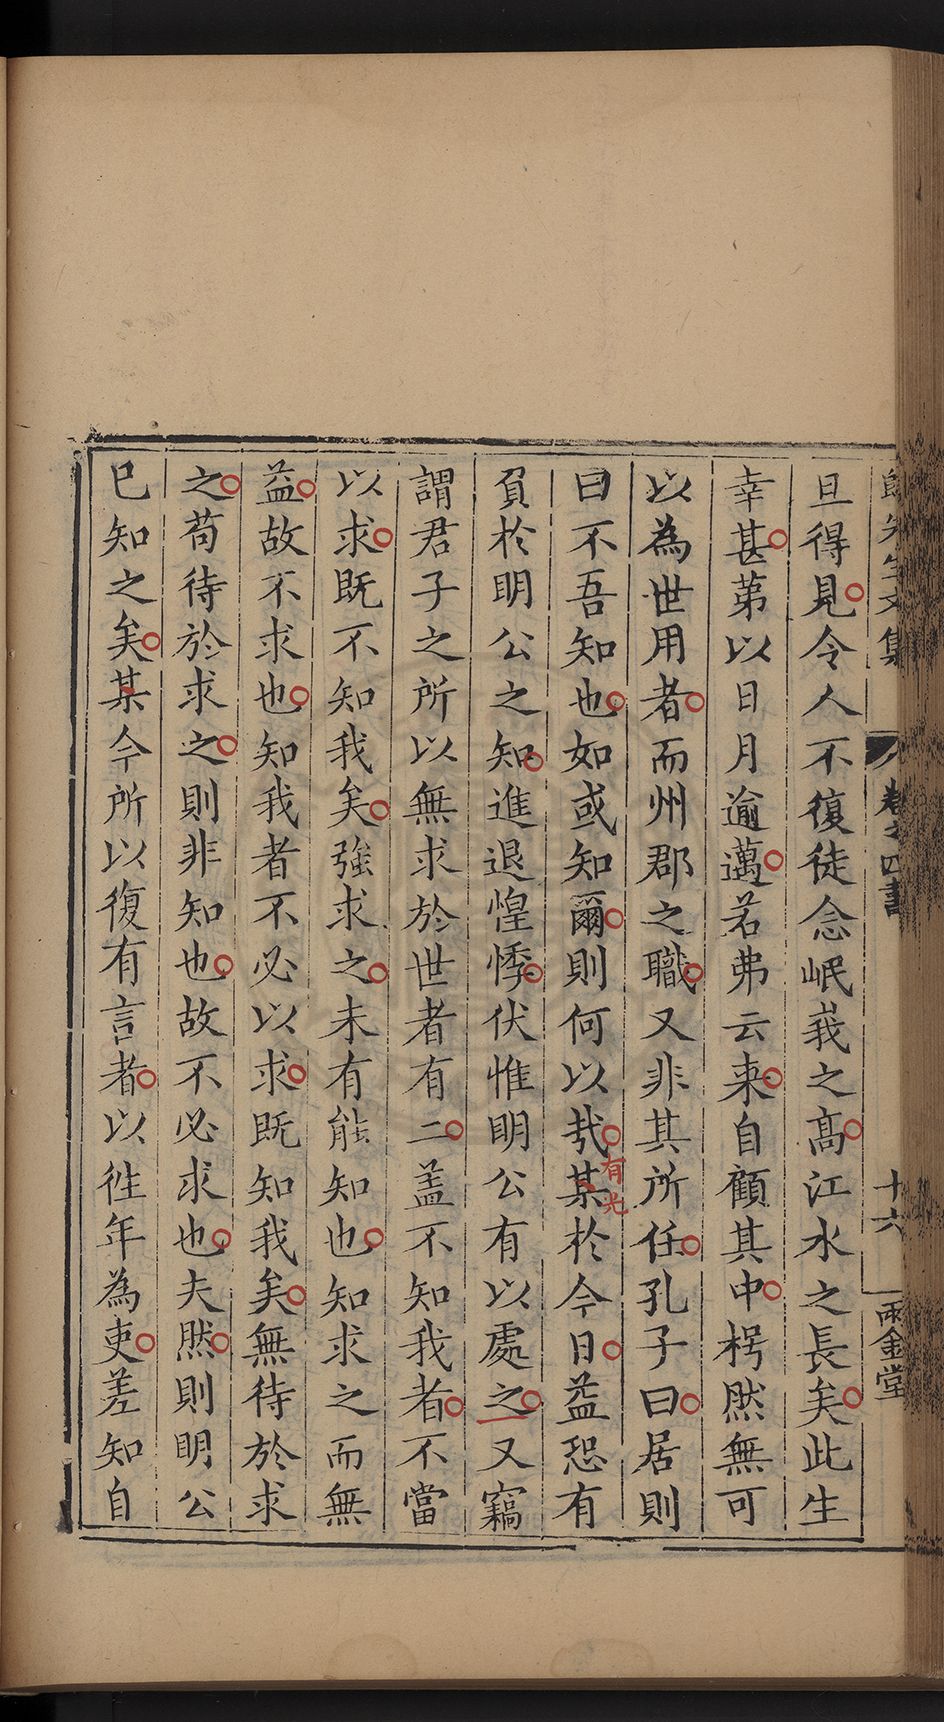 歸先生文集 卷之四書 十六 雨金堂
旦得見令人不復徒念岷峩之高江水之長矣此生
幸甚苐以日月逾邁若弗云来自顧其中枵然無可
以為世用者而州郡之職又非其所任孔子曰居則
曰不吾知也如或知爾則何以㢤某於今日益恐有
有光
負於明公之知進退惶悸伏惟明公有以處之又竊
謂君子之所以無求於世者有二盖不知我者不當
以求既不知我矣強求之未有能知也知求之而無
益故不求也知我者不必以求既知我矣無待於求
之苟待於求之則非知也故不必求也夫然則明公
已知之矣某今所以復有言者以徃年為吏差知自